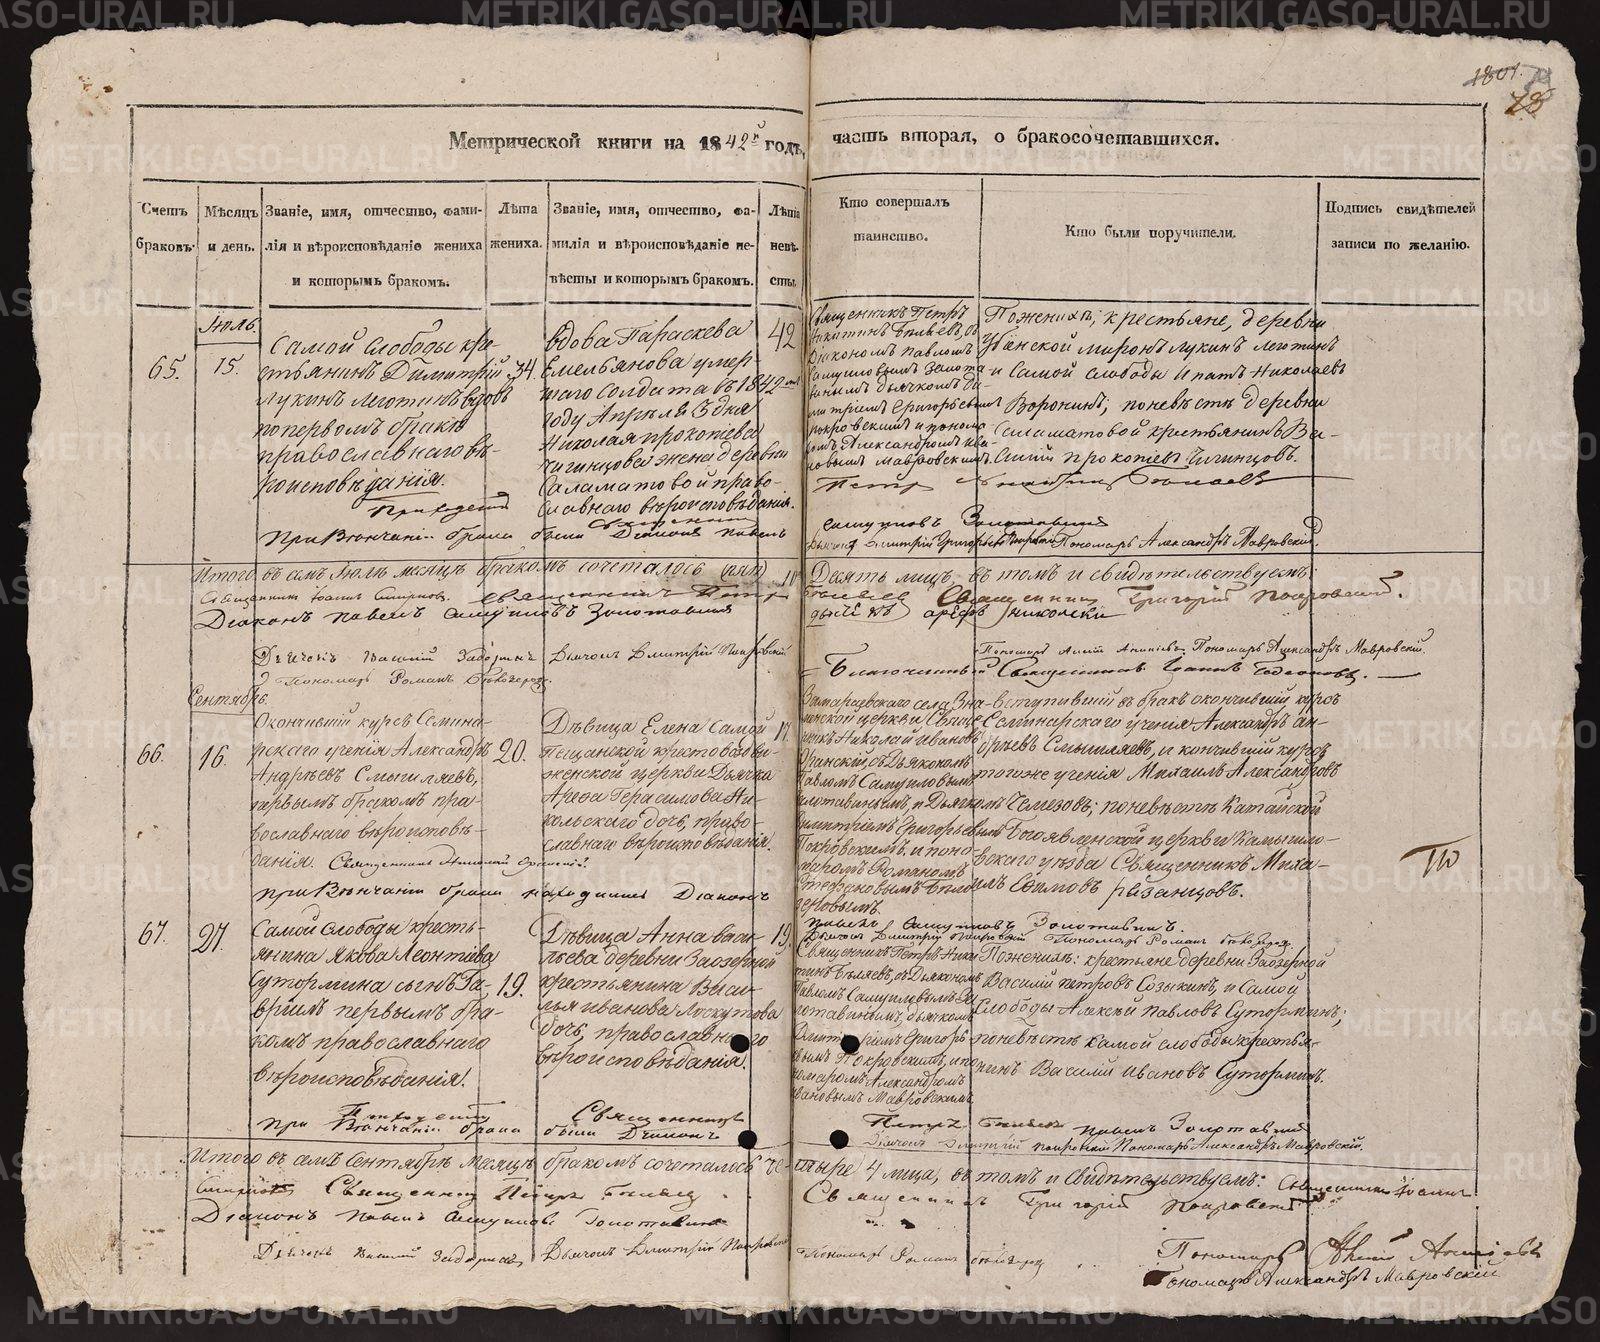 1801.
78
Метрической книги на 1842й годъ, часть вторая, о бракосочетавшихся.
Счетъ браковъ.
Мѣсяцъ и день.
Званіе, имя, отчество, фами-
лія и вѣроисповѣданіе жениха
и которымъ бракомъ.
Лѣта
жениха.
Званіе, имя, отчество, фа-
милія и вѣроисповѣданіе не-
вѣсты и которымъ бракомъ.
Лѣта
невѣ-
сты.
Кто совершалъ
таинство.
Кто были поручители.
Подпись свидѣтелей
записи по желанію.
Іюль.
65.
15.
Самой слободы кре-
стьянинъ Димитрій
Лукинъ Леготинъ вдовъ
по первомъ бракѣ
православнаго вѣ-
роисповѣданія.
34.
вдова Параскева
Емельянова умер-
шаго солдата въ 1842мъ
году Апрѣля 3 дня
Николая Прокопіева
Чигинцова жена деревни
Саламатовой право-
славнаго вѣроисповѣданія.
42
Священникъ Петръ
Никитинъ Бѣляевъ, съ
Діакономъ Павломъ
Самуиловымъ Золота-
винымъ дьячкомъ Ди-
митріемъ Григорьевымъ
Покровскимъ и понома-
ремъ Александромъ Ива-
новымъ Мавровскимъ.
По женихѣ; крестьяне, деревни
Миронъ Лукинъ Леготинъ
и самой слободы Ипатъ Николаевъ
Воронинъ; по невѣстѣ деревни
Саламатовой крестьянинъ Ва-
силій Прокопіевъ Чигинцовъ.
При Вѣнчаніи брака были Діаконъ Павелъ
Самуиловъ Золотавинъ
Пономарь Александръ Мавровскій.
Итого въ семъ Іюлѣ месяцѣ бракомъ сочеталось Десять лицъ, въ томъ и свидѣтельствуемъ:
Священникъ Іоаннъ Смирновъ. Священникъ Петръ Бѣляевъ Священникъ Григорій Покровскій.
Діаконъ Павелъ Самуиловъ Золотавинъ
Дьячекъ Василій Задоринъ Дьячекъ Димитрій Покровскій
Пономарь Александръ Мавровскій.
Пономарь Романъ
Благочинный Священникъ Іоаннъ
Сентябрь.
66.
16.
Окончившій курсъ Семина-
рскаго ученія Александръ
Андреевъ Смышляевъ,
первымъ бракомъ пра-
вославнаго вѣроисповѣ-
данія.
20.
Дѣвица Елена самой
Пещанской крестовоздви-
женской церкви Дьячка
Арефа Герасимова Ни-
кольскаго дочь, право-
славнаго вѣроисповѣданія.
17.
Замараевскаго села Зна-
менской церкви Свяще-
нникъ Николай Ивановъ
съ Дьякономъ
Павломъ Самуиловымъ
Золотавинымъ, и Дьячкомъ
Димитріемъ Григорьевымъ
Покровскимъ и поно-
маремъ Романомъ
Стефановымъ
вступившій въ бракъ окончившій курсъ
Семинарскаго ученія Александръ Ан-
дреевъ Смышляевъ, и кончившій курсъ
того же ученія Михаилъ Александровъ
Чемезовъ; по невѣстѣ Катайской
Богоявленской церкви Камышло-
вскаго уѣзда Священникъ Миха-
илъ Ефимовъ Рязанцовъ.
При Вѣнчаніи брака находились Діаконъ
Павелъ Самуиловъ Золотавинъ.
67.
27.
Самой слободы кресть-
янина Якова Леонтіева
Сутормина сынъ Га-
вріилъ первымъ бра-
комъ православнаго
вѣроисповѣданія.
19.
Дѣвица Анна Васи-
льева деревни Заозерной
крестьянина Васи-
лья Иванова Лоскутова
дочь, православнаго
вѣроисповѣданія.
19.
Священникъ Петръ Ники-
тинъ Бѣляевъ, съ Дьякономъ
Павломъ Самуиловымъ Зо-
лотавинымъ, дьячкомъ
Димитріемъ Григорь-
евымъ Покровскимъ, и по-
номаремъ Александромъ
Ивановымъ Мавровскимъ.
По женихѣ: крестьяне деревни Заозерной
Василій Петровъ Созыкинъ, и самой
слободы Алексѣй Павловъ Суторминъ;
по невѣстѣ самой слободы крестья-
нинъ Василій Ивановъ Суторминъ.
При Вѣнчаніи брака были Діаконъ
Павелъ Золотавинъ
Пономарь Александръ Мавровскій.
Итого въ семъ Сентябрѣ месяцѣ бракомъ сочеталось че-
тыре 4 лица, въ томъ и свидѣтельствуемъ: Священникъ Іоаннъ
Смирновъ Священникъ Петръ Бѣляевъ
Священникъ Григорій Покровскій
Діаконъ Павелъ Самуиловъ Золотавинъ
Дьячекъ Василій Задоринъ Дьячекъ Димитрій Покровскій
Пономарь Романъ
Пономарь
Пономарь Александръ Мавровскій
METRIKI.GASO-URAL.RU